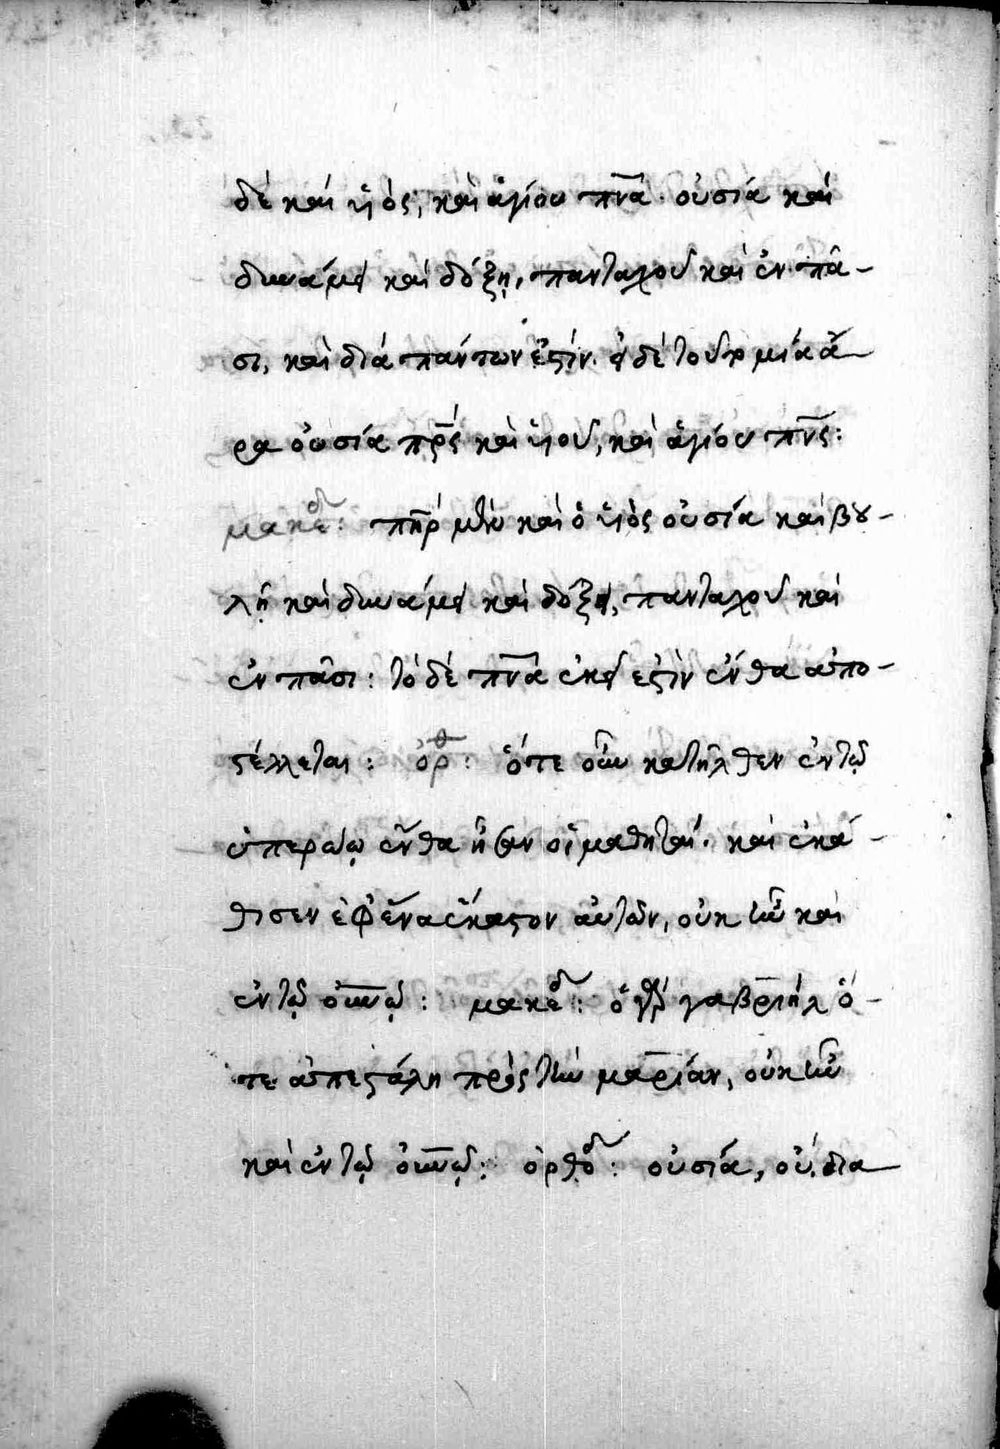 δὲ καὶ υἱὸς, καὶ ἁγίου πνα. οὐσία καὶ
δυνάμει καὶ δόξῃ, πανταχοῦ καὶ ἐν πᾶ-
σι, καὶ διὰ πάντων ἐστὶν. εἰ δὲ τοῦτο μία ἄ-
ρα οὐσία πρς καὶ υἱοῦ, καὶ ἁγίου πνς:
μακεδ: πηρ μὲν καὶ ὁ υἱὸς οὐσία καὶ βου-
λῇ καὶ δυνάμει καὶ δόξει, πανταχοῦ καὶ
ἐν πᾶσι: τὸ δὲ πνα ἐκεῖ ἐστὶν ἔνθα ἀπο-
στέλλεται: ὀρθ: ὅτε οὖν κατῆλθεν ἐν τῷ
ὑπερώῳ ἔνθα ἦσαν οἱ μαθηταί. καὶ ἐκά-
θισεν ἐφ' ἕνα ἕκαστον αὐτῶν, οὐκ ἦν καὶ
ἐν τῷ οὐνῷ: μακεδ: ὁ γὰρ γαβριὴλ ὅ-
τε ἀπεστάλη πρὸς τὴν μαρίαν, οὐκ ἦν
καὶ ἐν τῷ οὐνῷ: ὀρθοδ: οὐσία, οὐ δια